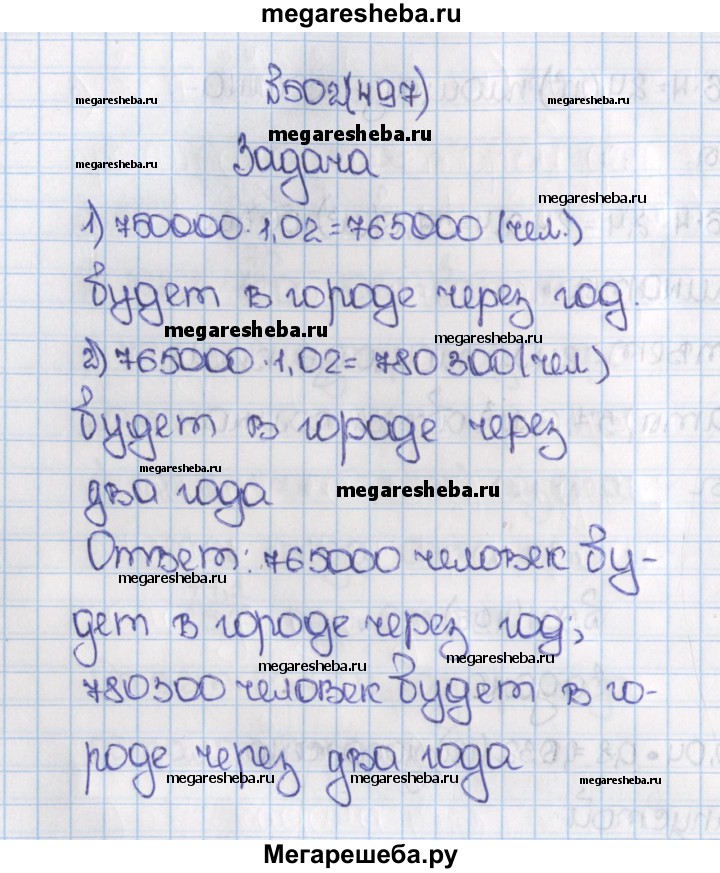 megaresheba.ru
В502(497)
megaresheba.ru
megaresheba.ru
megaresheba.ru
megaresheba.ru
Задача
megaresheba.ru
1) 750000·1,02=765000 (чел.)
будет в городе через год.
megaresheba.ru
megaresheba.ru
2) 765000·1,02= 780300(чел)
будет в городе через
megaresheba.ru
два года
megaresheba.ru
Ответ: 765000 человек бу-
megaresheba.ru
дет в городе через год;
megaresheba.ru
megaresheba.ru
780300 человек будет в го-
роде через два года
megaresheba.ru
megaresheba.ru
megaresheba.ru
Мегарешеба.ру